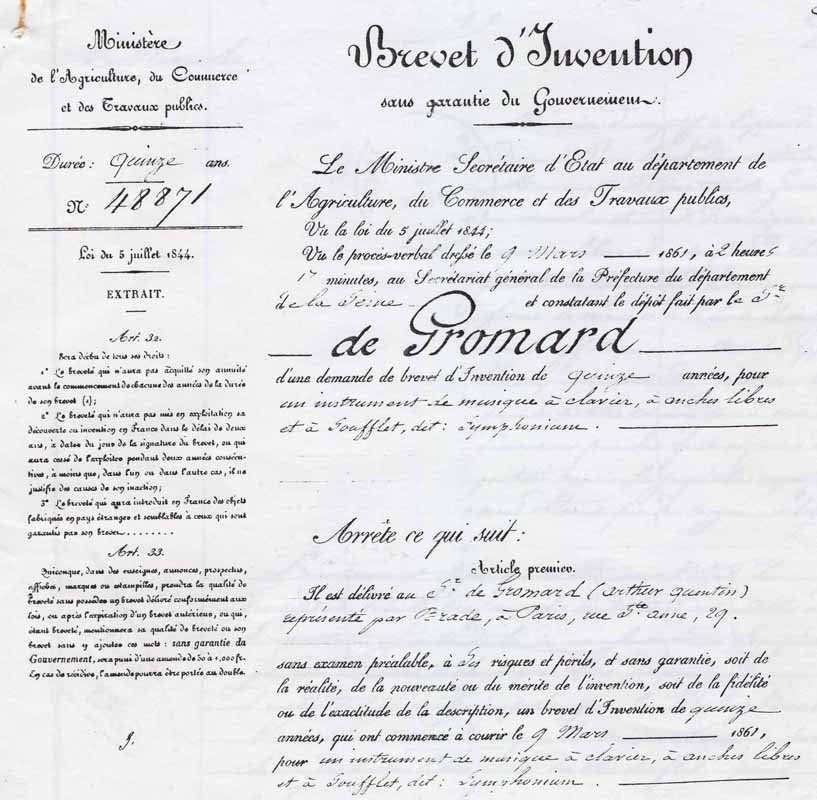 Ministère
de l'Agriculture, du Commerce
et des Travaux publics.
Durée: quinze ans.
N° 48871
Loi du 5 juillet 1844.
EXTRAIT.
Art. 32.
Sera déchu de tous ses droits:
1° Le breveté qui n'aura pas acquitté son annuité
avant le commencement de chacune des années de la durée
de son brevet (1);
2° Le breveté qui n'aura pas mis en exploitation sa
découverte ou invention en France dans le délai de deux
ans, à dater du jour de la signature du brevet, ou qui
aura cessé de l'exploiter pendant deux années consécu-
tives, à moins que, dans l'un ou dans l'autre cas, il ne
justifie des causes de son inaction;
3° Le breveté qui aura introduit en France des objets
fabriqués en pays étranger et semblables à ceux qui sont
garantis par son brevet........
Art. 33.
Quiconque, dans des enseignes, annonces, prospectus,
affiches, marques ou estampilles, prendra la qualité de
breveté sans posséder un brevet délivré conformément aux
lois, ou après l'expiration d'un brevet antérieur, ou qui,
étant breveté, mentionnera sa qualité de breveté ou son
brevet sans y ajouter ces mots: sans garantie du
Gouvernement, sera puni d'une amende de 50 à 1,000 fr.
En cas de récidive, l'amende pourra être portée au double.
Brevet d'Invention
sans garantie du Gouvernement.
Le Ministre Secrétaire d'Etat au département de
l'Agriculture, du Commerce et des Travaux publics,
Vu la loi du 5 juillet 1844;
Vu le procès-verbal dressé le 9 Mars 1861, à 2 heures
17 minutes, au Secrétariat général de la Préfecture du département
de la Seine et constatant le dépôt fait par le Sr
de Gromard
d'une demande de brevet d'Invention de quinze années, pour
un instrument de musique à clavier, à anches libres
et à soufflet, dit: Symphonium.
Arrête ce qui suit:
Article premier.
Il est délivré au Sr de Gromard (Arthur Quentin)
représenté par Prade, à Paris, rue Ste anne, 29.
sans examen préalable, à ses risques et périls, et sans garantie, soit de
la réalité, de la nouveauté ou du mérite de l'invention, soit de la fidélité
ou de l'exactitude de la description, un brevet d'Invention de quinze
années, qui ont commencé à courir le 9 Mars 1861,
pour un instrument de musique à clavier, à anches libres
et à soufflet, dit: Symphonium.